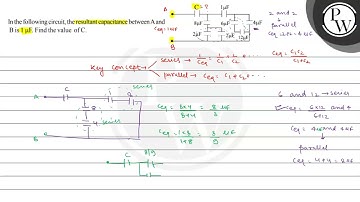 In the following circuit, the resultant capacitance between A and
B is 1 μF. Find the value of C.
A
C = ?
1μF
8μF
6μF
4μF
2μF
2μF
12μF
B
Ceq = 1μF
2 and 2
↓
parallel
Key concept → series → 1/Ceq = 1/C1 + 1/C2 + ... Ceq = C1C2/C1+C2
parallel → Ceq = C1 + C2 + ...
series
A
C
1
8
8
4
series
B
Ceq = 8×4/8+4 = 8/3 μF
Ceq = 1×8/1+8 = 8/9 μF
C
8/9
6 and 12 → series
Ceq = 6×12/6+12
Ceq = 4μF and 4μF
↓
parallel
Ceq = 4+4 = 8μF